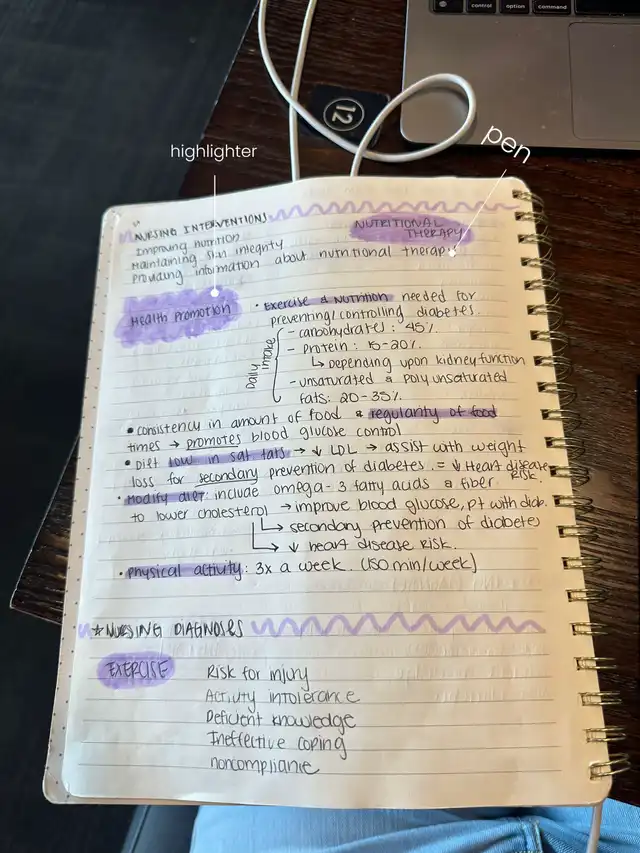 control option command
12
highlighter
pen
NURSING INTERVENTIONS
NUTRITIONAL THERAPY
Improving nutrition
Maintaining skin integrity
Providing information about nutritional therapy
Health Promotion
• Exercise & Nutrition needed for
preventing/controlling diabetes.
Daily intake
- carbohydrates: 45%
- Protein: 15-20%
↳ Depending upon kidney function
- unsaturated & poly unsaturated
fats: 20-35%
• consistency in amount of food & regularity of food
times → promotes blood glucose control
• Diet low in sat fats → ↓ LDL → assist with weight
loss for secondary prevention of diabetes. = ↓ Heart disease RISK.
• Modify diet: include omega-3 fatty acids & fiber
to lower cholesterol → improve blood glucose, pt with diab.
↳ secondary prevention of diabetes
↳ ↓ heart disease risk.
• Physical activity: 3x a week. (150 min/week)
★ NURSING DIAGNOSES
EXERCISE
Risk for injury
Activity intolerance
Deficient knowledge
Ineffective coping
noncompliance